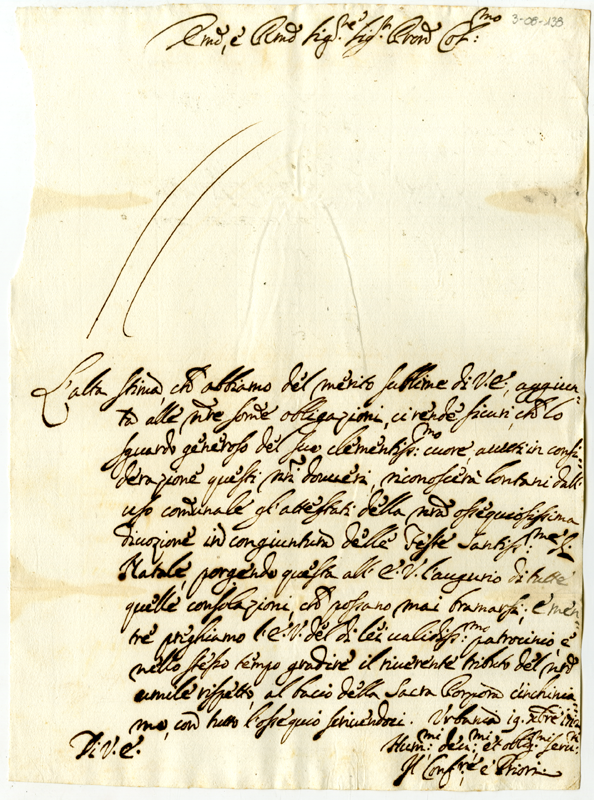 3-08-138
Em̃o, e Rm̃o Sig.re Sig.r Proñ Col:mo
L'alta stima, ch̃e abbiamo del merito sublime di V.E., aggiun-
ta alle ñre som̃e obligazioni, ci rende sicuri, ch̃e lo
sguardo generoso del suo clementiss:mo cuore, auuti in consi-
derazione questi ñri doueri, riconoscerà lontani dall'
uso comunale gl'attestati della ñra ossequiosissima
diuozione in congiuntura delle Feste Santiss:me di
Natale porgendo questa all'E.V. l'augurio di tutte
quelle consolazioni, ch̃e possano mai bramarsi; e men-
tre preghiamo l'E.V. del di lei ualidiss:mo patrocinio, e
nello stesso tempo gradire il riuerente tributo del ñro
umile rispetto al bacio della Sacra Porpora c'inchinia-
mo, con tutto l'ossequio scriuendoci. Urbania 19. Xbre
Di V.E. Hum:mi deu:mi et oblig:mi seru:ri
Il Conf:re e Priori